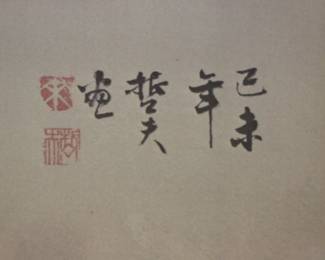 己未
年
哲夫
画